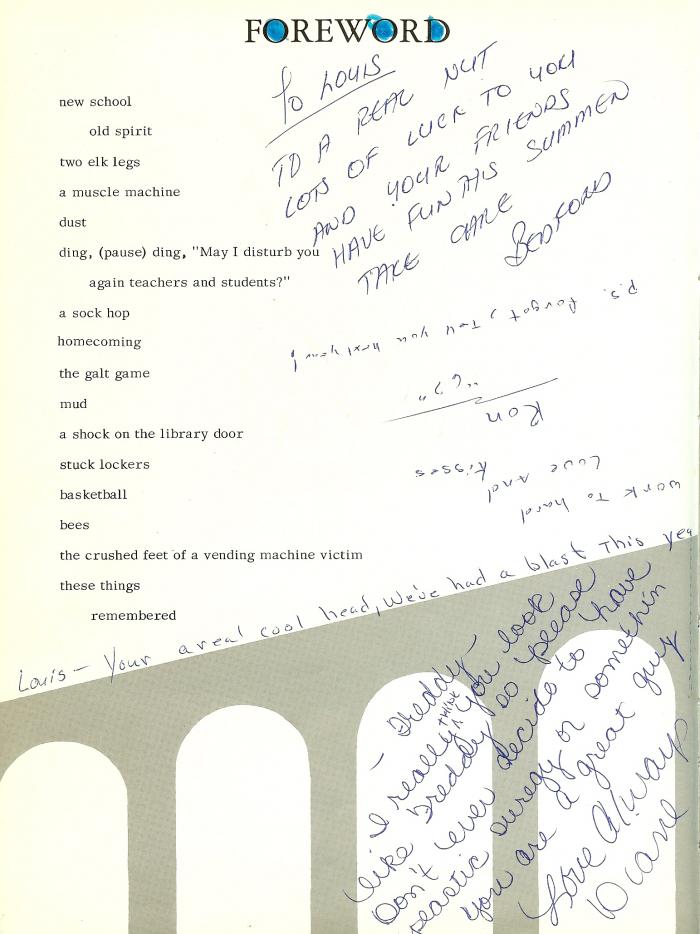 FOREWORD
new school
old spirit
two elk legs
a muscle machine
dust
ding, (pause) ding, "May I disturb you
again teachers and students?"
a sock hop
homecoming
the galt game
mud
a shock on the library door
stuck lockers
basketball
bees
the crushed feet of a vending machine victim
these things
remembered
To LOUIS
TO A REAL NUT
LOTS OF LUCK TO YOU
AND YOUR FRIENDS
HAVE FUN THIS SUMMER
TAKE CARE
BEDFORD
Louis— Your a real cool head, we've had a blast this yea
work To hard
Love And
Kisses
Ron
P.S. forgot, Tell you next year!
— Breddy —
I really THINK you look
like Breddy so please
Don't ever decide to have
plastic suregy or somethin
you are a great guy
Love Always
Diane